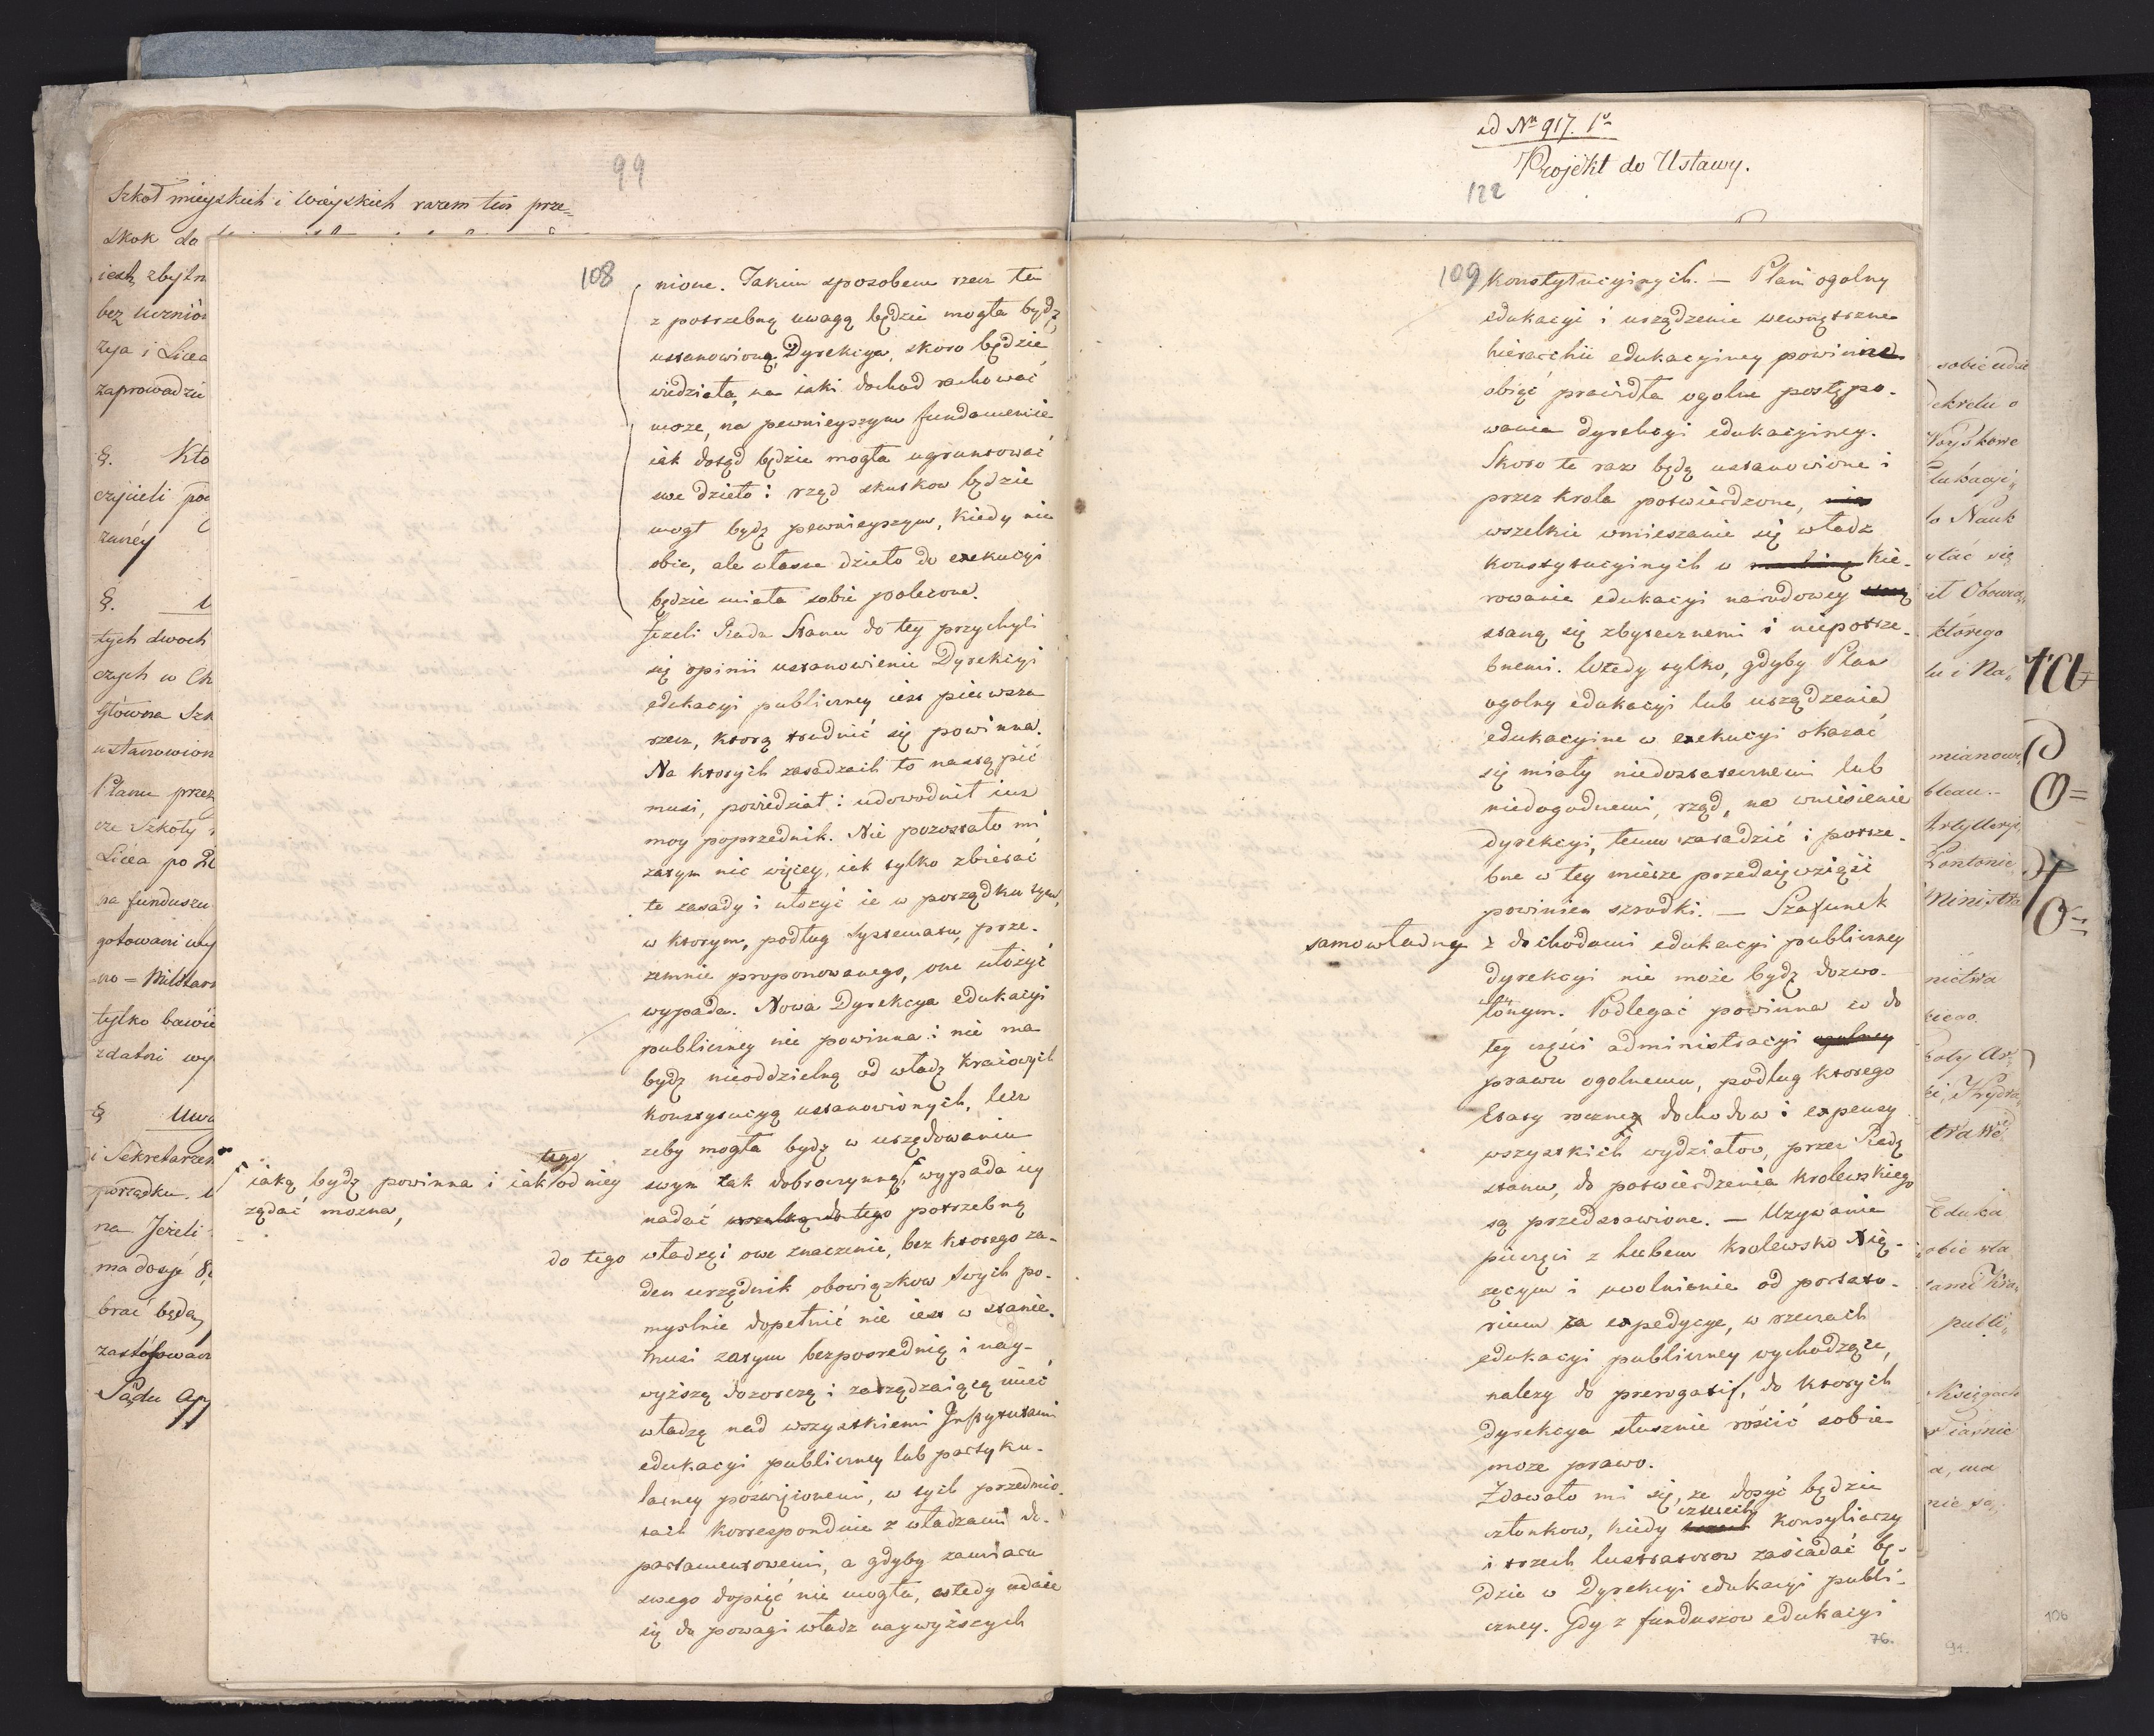 99
Szkoł mieyskich i Wieyskich razem ten prze=
skok do
iest zbytn
bez Uczniów
zya i Licea
zaprowadzić
§. Kto
czycieli po
znney
§.
tych dwoch
czych w Ch
Główna Szk
ustanowion
Planu przez
cze Szkoły
Licea po
na funduszu
gotowani
tylko bawie
zdatni wy
§ Uwa
i Sekretarzem
porządku.
na Jeżeli
ma dosyć
brać będą
zastósowan
Sądu Ap
108
nione. Takim sposobem rzecz ta
z potrzebną uwagą będzie mogła bydź
ustanowioną, Dyrekcya, skoro będzie
widziała, na iaki dochod rachować
może, na pewnieyszym fundamencie
iak dotąd będzie mogła ugruntować
swe dzieło: rząd skutkow będzie
mogł bydź pewnieyszym, kiedy nie
obce, ale własne dzieło do exekucyi
będzie miała sobie polecone.
Jeżeli Rada Stanu do tey przychyli
się opinii ustanowienie Dyrekcyi
edukacyi publiczney iest pierwsza
rzecz, ktorą trudnić się powinna.
Na ktorych zasadzach to nastąpić
musi, powiedział i udowodnił iuż
moy poprzednik. Nie pozostało mi
zatym nic więcey, iak tylko zbierać
te zasady i ułożyć ie w porządku tym,
w ktorym, podług Systematu, prze-
zemnie proponowanego, one ułożyć
wypada. Nowa Dyrekcya edukacyi
publiczney nie powinna i nie ma
bydź nieoddzielną od władz kraiowych
konstytucyą ustanowionych, lecz
żeby mogła bydź w urzędowaniu
swym tak dobroczynną, wypada iey
tego
iaką bydź powinna i iak od niey
żądać można,
nadać wszelką do tego potrzebną
do tego
władzę i owe znaczenie, bez ktorego ża-
den urzędnik obowiązkow swych po-
myślnie dopełnić nie iest w stanie.
Musi zatym bezpośrednią i nay-
wyższą dozorczą i zarządzaiącą mieć
władzę nad wszystkiemi Instytutami
edukacyi publiczney lub partyku-
larney poświęconemi, w tych przedmio-
tach korresponduie z władzami de-
partamentowemi, a gdyby zamiaru
swego dopiąć nie mogła, wtedy udaie
się do powagi władz naywyższych
ad Nrn 917. 1o
Projekt do Ustawy.
122
109
konstytucyinych. — Plan ogolny
edukacyi i urządzenie wewnętrzne
hierarchii edukacyiney powinne
obiąć prawidła ogolne postępo-
wania dyrekcyi edukacyiney.
Skoro te raz będą ustanowione i
przez krola potwierdzone, nie
wszelkie wmieszanie się władz
konstytucyinych w machinę kie-
rowanie edukacyi narodowey staną
staną się zbytecznemi i niepotrze-
bnemi. Wtedy tylko, gdyby Plan
ogolny edukacyi lub urządzenia
edukacyine w exekucyi okazać
się miały niedostatecznemi lub
niedogodnemi, rząd, na wniesienie
dyrekcyi, temu zaradzić i potrze-
bne w tey mierze przedsięwziąść
powinien srzodki. — Szafunek
samowładny z dochodami edukacyi publiczney
dyrekcyi nie może bydź dozwo-
lonym. Podlegać powinna co do
tey części administracyi ogolney
prawu ogolnemu, podług ktorego
Etaty roczney dochodow i expensy
wszystkich wydziałow, przez Radę
stanu, do potwierdzenia krolewskiego
są przedstawione. — Używanie
pieczęci z herbem Krolewsko Xią-
żęcym i uwolnienie od portato-
rium za expedycye, w rzeczach
edukacyi publiczney wychodzące,
należy do prerogatif, do ktorych
dyrekcya słusznie rościć sobie
może prawo.
Zdawało mi się, że dosyć będzie
czterech
członkow, kiedy konsyliarzy
i trzech lustratorow zasiadać bę-
dzie w Dyrekcyi edukacyi publi-
czney. Gdy z funduszow edukacyi
76.
sobie udzie
dekretu o
Woyskowe
Edukacyi
do Nauk
ytać się
it Obowią
którego
lu i Na
mianow
bleau.
Artyllerye
Pontonie
Ministra
nictwa
Edukа
sobie wła
publi
Xsięgach
a, ma
nie są
91.
106